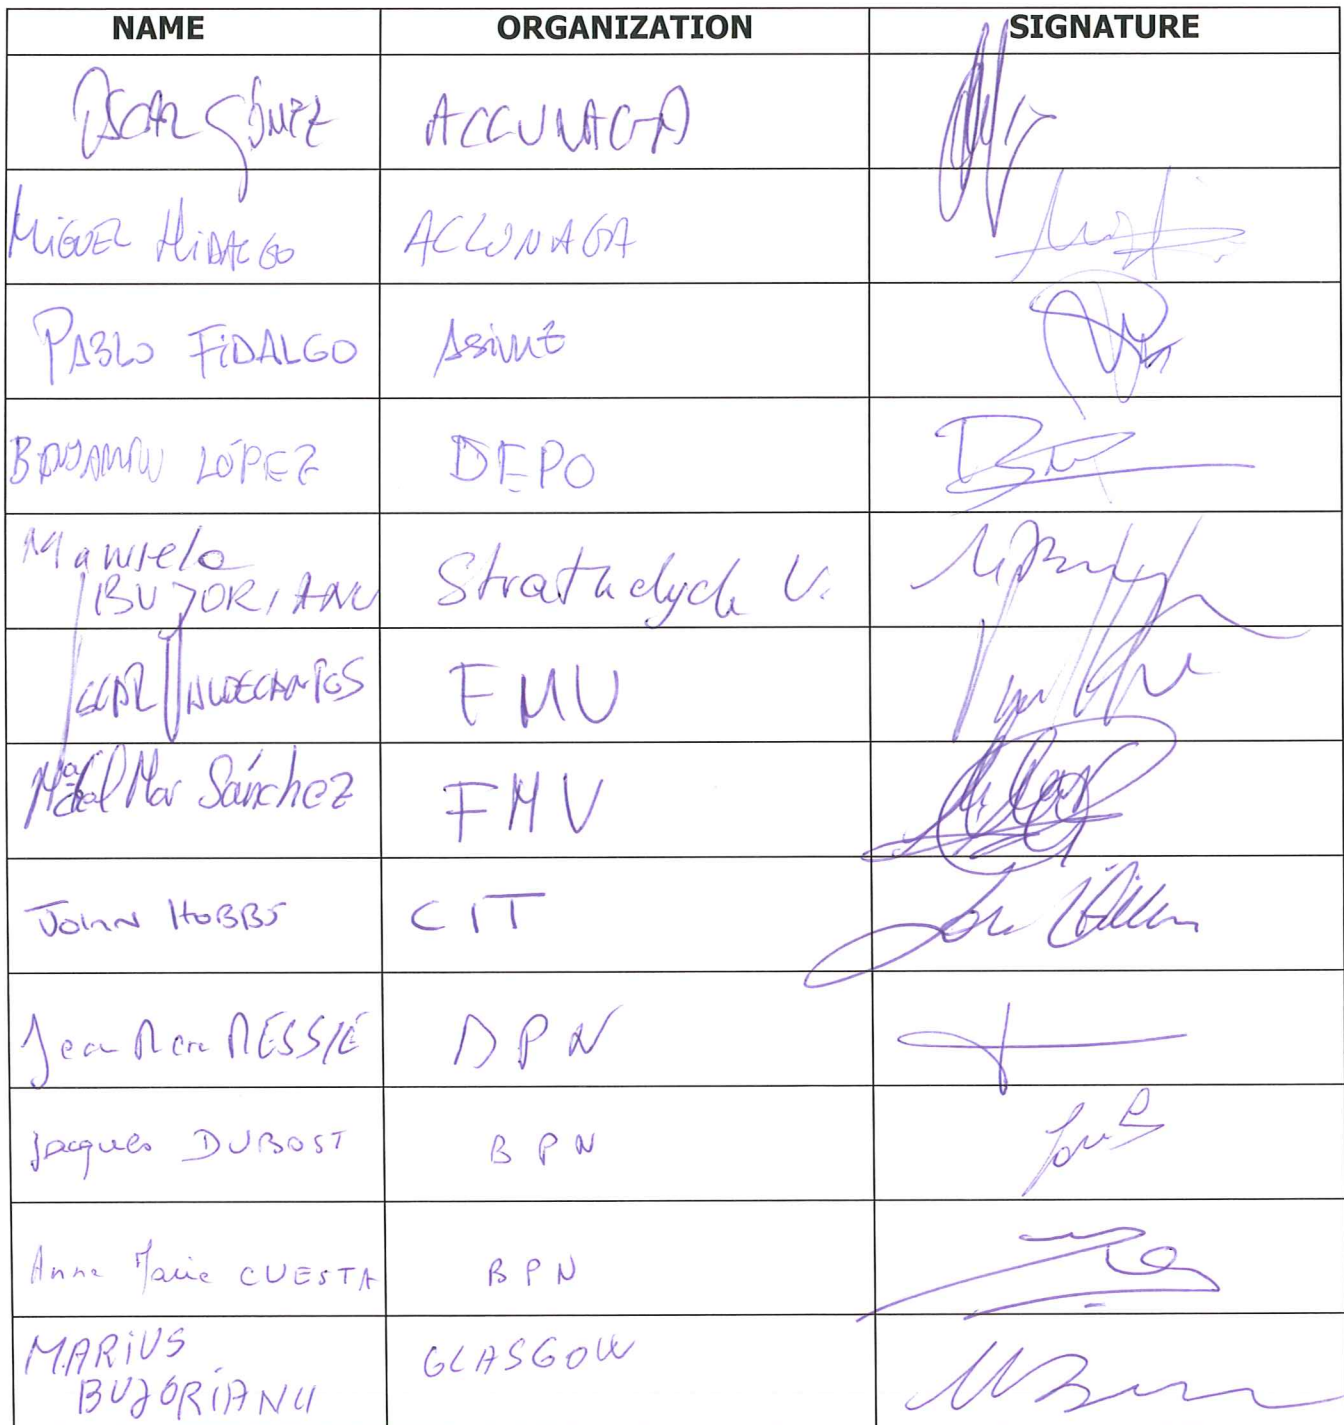 NAME ORGANIZATION SIGNATURE
OSCAR GÓMEZ ACCUNAGA
MIGUEL HIDALGO ACLUNAGA
PABLO FIDALGO ASIME
BENJAMIN LÓPEZ DEPO
Manuela
BUJORIANU Strathclyde U.
VALDECANTOS FMV
Mª del Mar Sánchez FMV
JOHN HOBBS CIT
Jean Marc MESSIÉ BPN
Jacques DUBOST BPN
Anne Marie CUESTA BPN
MARIUS
BUJORIANU GLASGOW